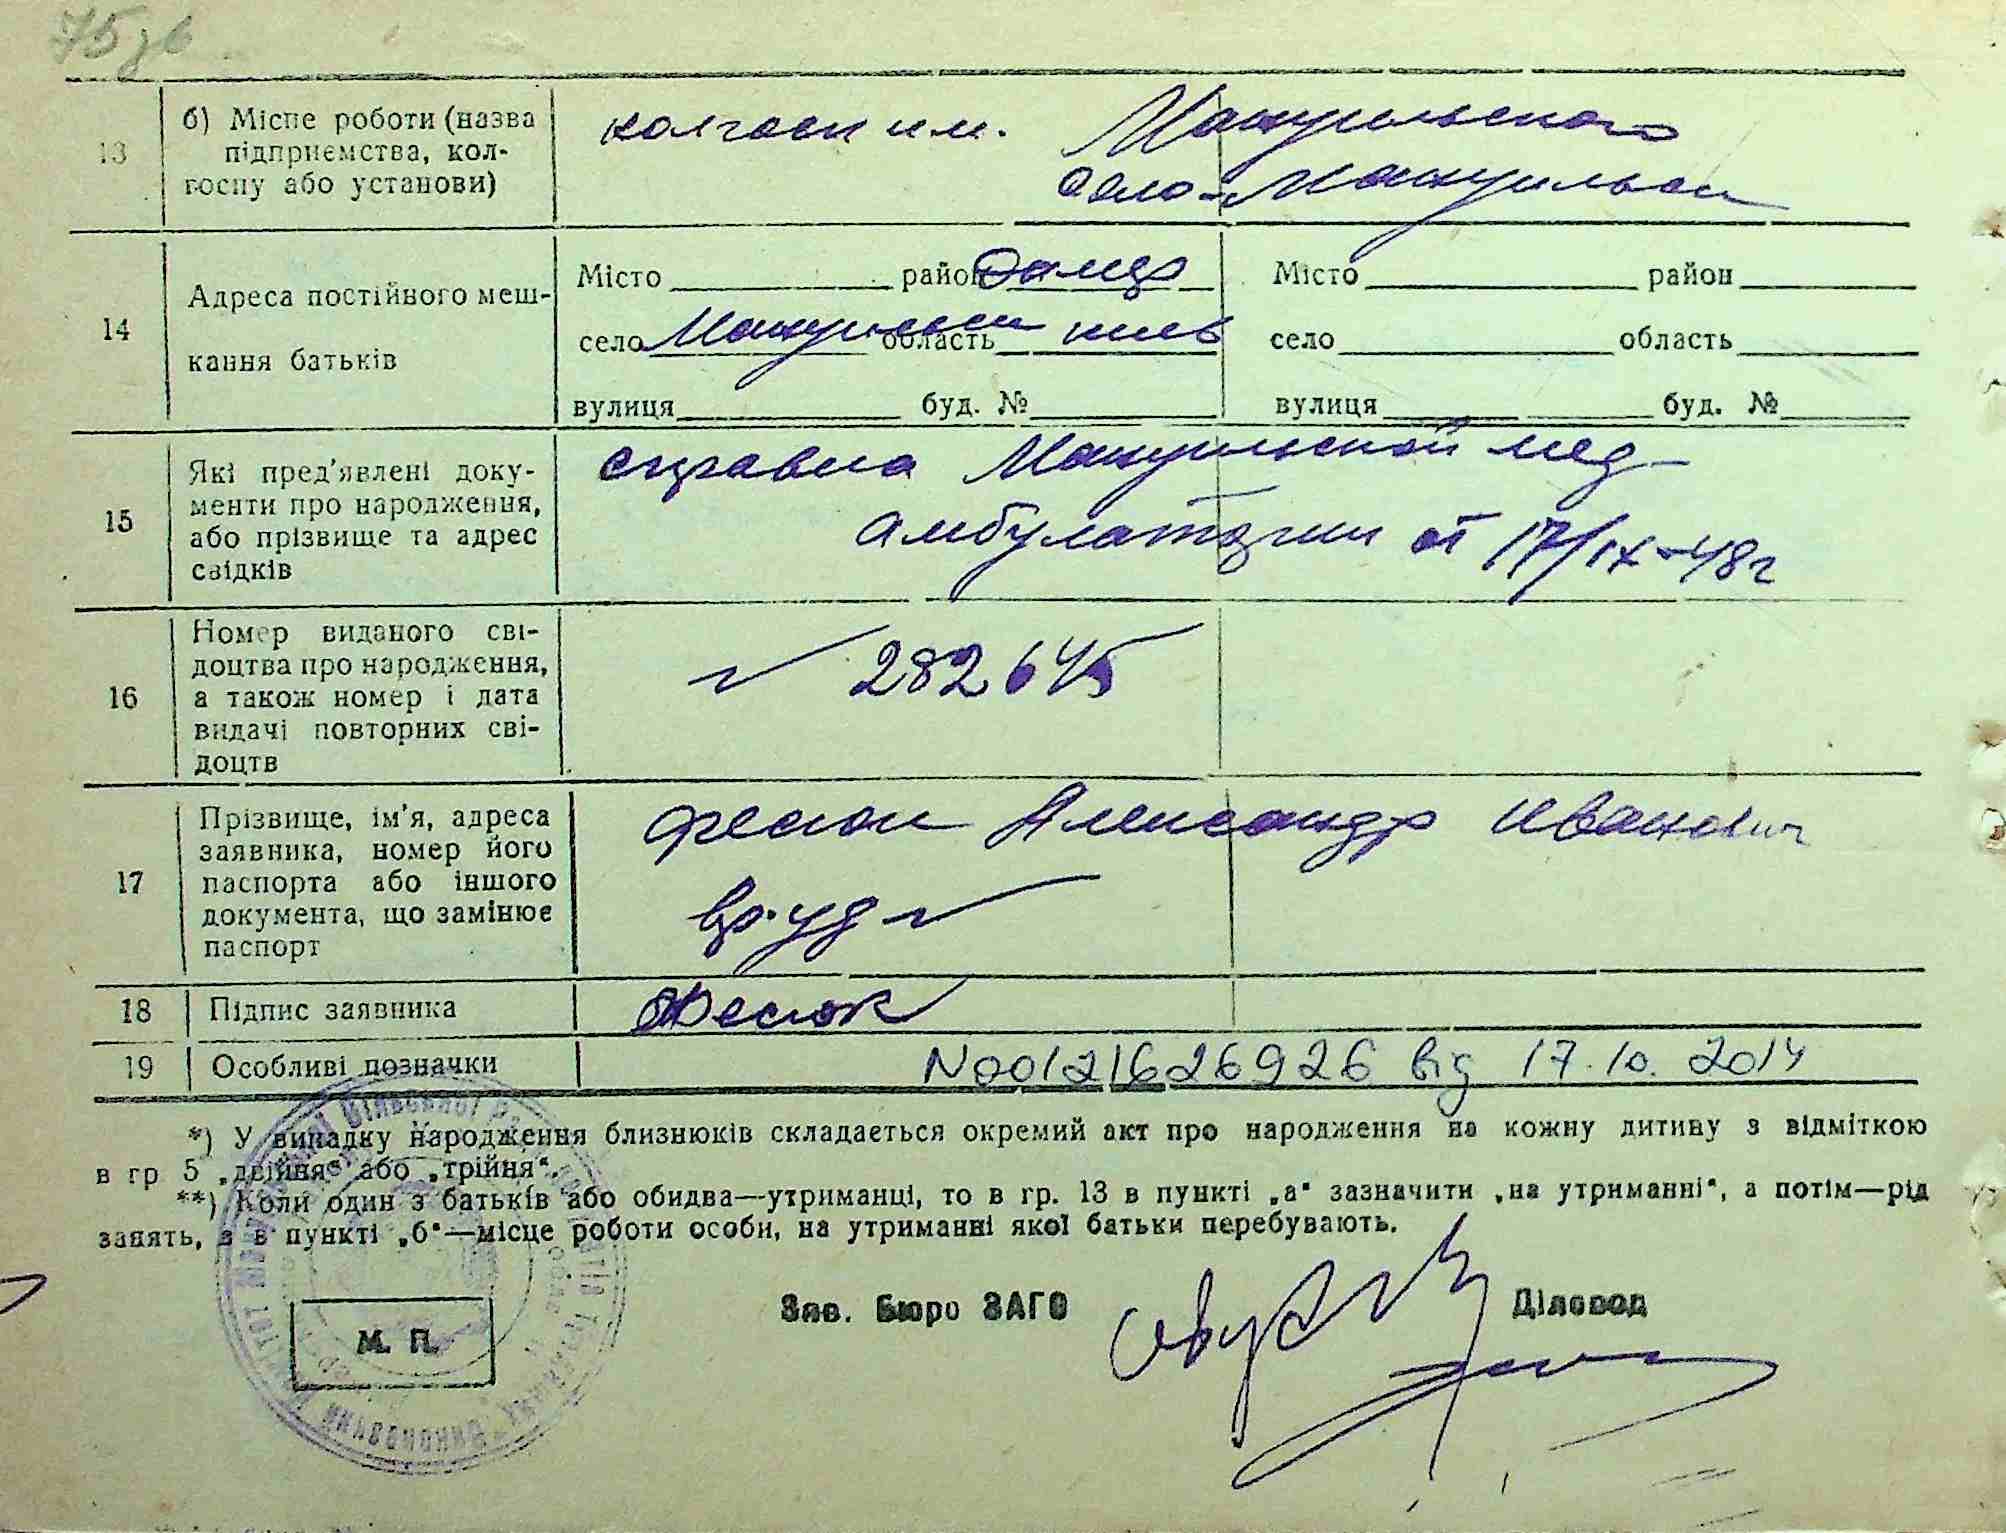 75 зв
13
б) Місце роботи (назва
підприємства, кол-
госпу або установи)
колгосп им. Мануильского
село-Мануильск
14
Адреса постійного меш-
кання батьків
Місто район Димер Місто район
село Мануильск область киев село область
вулиця буд. № вулиця буд. №
15
Які пред'явлені доку-
менти про народження,
або прізвище та адрес
свідків
справка Мануильской мед-
амбулатории от 17/IX-48г
16
Номер виданого сві-
доцтва про народження,
а також номер і дата
видачі повторних сві-
доцтв
282645
17
Прізвище, ім'я, адреса
заявника, номер його
паспорта або іншого
документа, що замінює
паспорт
Фесюк Александр Иванович
вр. уд
18 Підпис заявника
Фесюк
19 Особливі позначки
N00121626926 від 17.10.2014
*) У випадку народження близнюків складається окремий акт про народження на кожну дитину з відміткою
в гр 5 „двійня“ або „трійня“.
**) Коли один з батьків або обидва—утриманці, то в гр. 13 в пункті „а“ зазначити „на утриманні“, а потім—рід
занять, а в пункті „б“—місце роботи особи, на утриманні якої батьки перебувають.
Зав. Бюро ЗАГС Діловод
М. П.